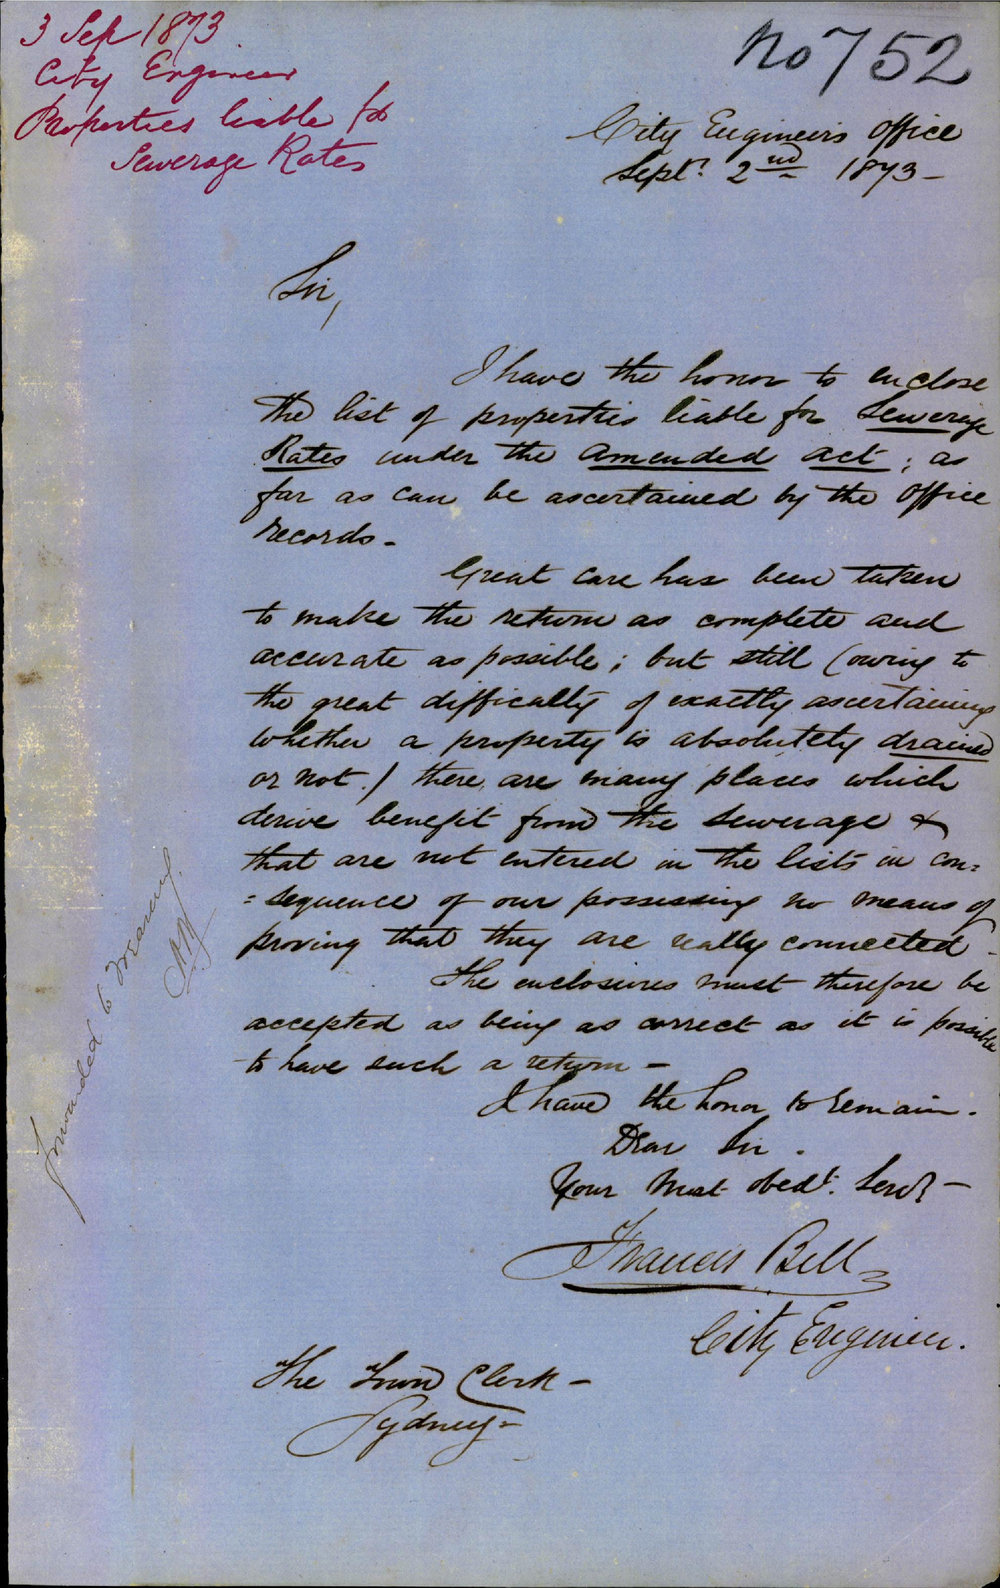 3 Sep 1873
City Engineer
Properties liable for
Sewerage Rates
No 752
City Engineer's Office
Septr. 2nd 1873 -
Sir,
I have the honor to enclose
the list of properties liable for Sewerage
Rates under the Amended Act; as
far as can be ascertained by the Office
records -
Great care has been taken
to make the return as complete and
accurate as possible; but still (owing to
the great difficulty of exactly ascertaining
whether a property is absolutely drained
or not.) there are many places which
derive benefit from the Sewerage &
that are not entered in the lists in con=
=sequence of our possessing no means of
proving that they are really connected -
The enclosures must therefore be
accepted as being as correct as it is possible
to have such a return -
I have the honor to remain.
Dear Sir.
Your Most obedt. Servt -
Francis Bell
City Engineer.
The Town Clerk -
Sydney -
forwarded to